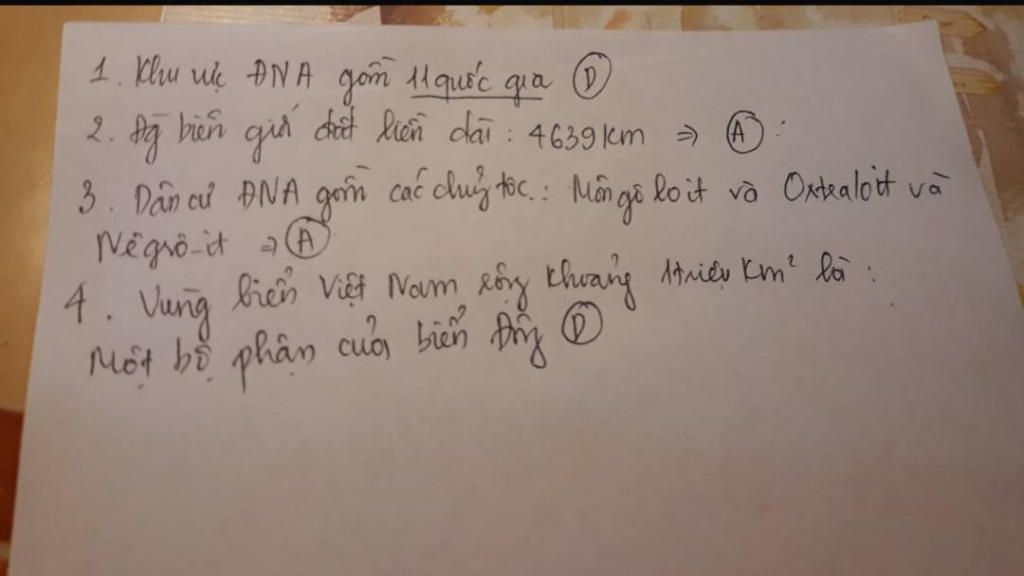 1. Khu vực ĐNA gồm 11 quốc gia (D)
2. biên giới đất liền dài : 4639 km ⇒ (A) :
3. Dân cư ĐNA gồm các chủng tộc : Môngôloit và Oxtraloit và
Nêgrô-it ⇒ (A)
4. Vùng biển Việt Nam rộng khoảng 1 triệu Km² là :
Một bộ phận của biển Đông (D)